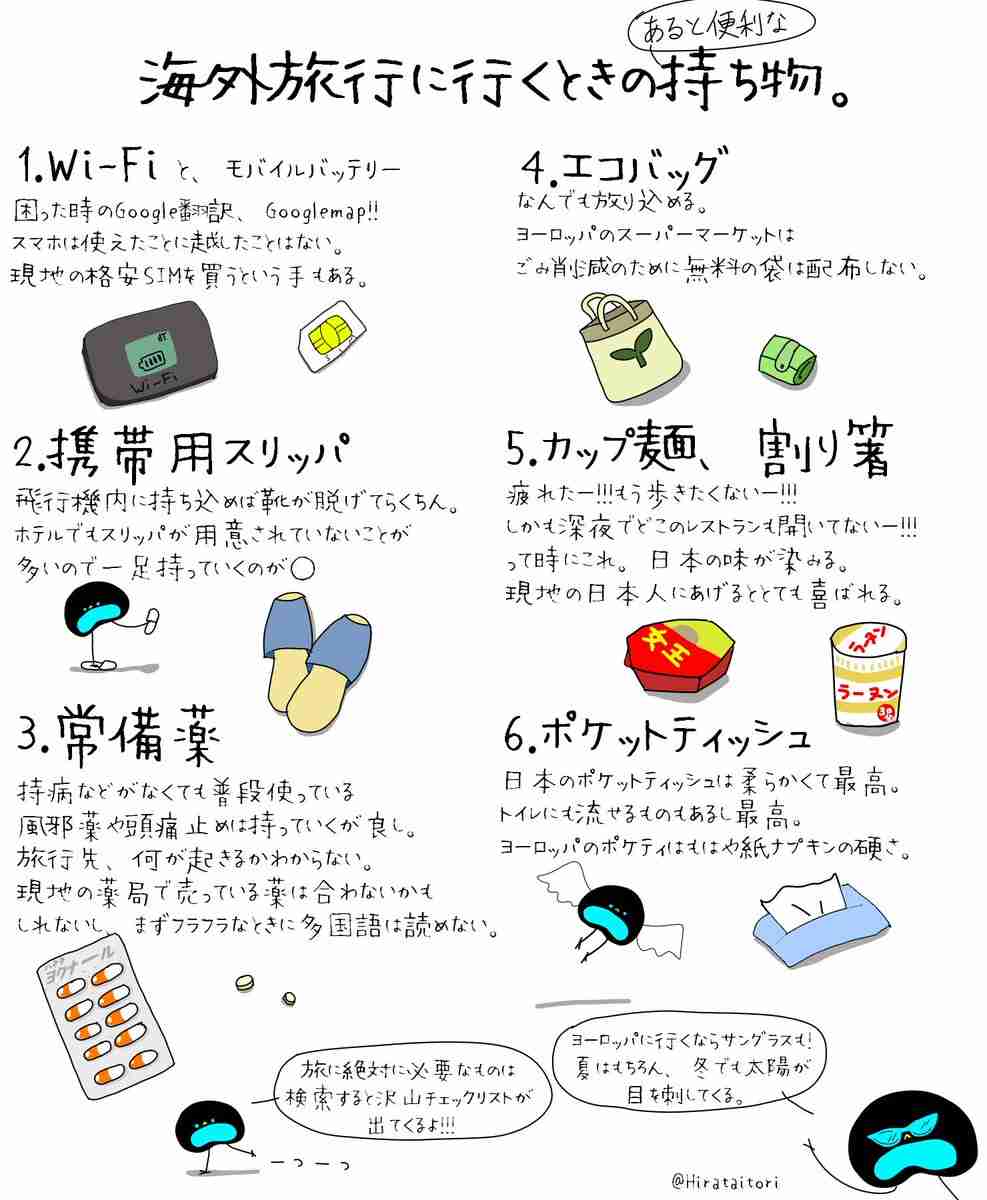 あると便利な
海外旅行に行くときの持ち物。
1.Wi-Fi と、モバイルバッテリー
困った時のGoogle翻訳、Googlemap!!
スマホは使えたことに越したことはない。
現地の格安SIMを買うという手もある。
Wi-Fi
2.携帯用スリッパ
飛行機内に持ち込めば靴が脱げてらくちん。
ホテルでもスリッパが用意されていないことが
多いので一足持っていくのが○
3.常備薬
持病などがなくても普段使っている
風邪薬や頭痛止めは持っていくが良し。
旅行先、何が起きるかわからない。
現地の薬局で売っている薬は合わないかも
しれないし、まずフラフラなときに多国語は読めない。
ヨクナール
4.エコバッグ
なんでも放り込める。
ヨーロッパのスーパーマーケットは
ごみ削減のために無料の袋は配布しない。
5.カップ麺、割り箸
疲れたー!!!もう歩きたくないー!!!
しかも深夜でどこのレストランも開いてないー!!!
って時にこれ。日本の味が染みる。
現地の日本人にあげるととても喜ばれる。
女王
ラーヌン
ラーヌン
6.ポケットティッシュ
日本のポケットティッシュは柔らかくて最高。
トイレにも流せるものもあるし最高。
ヨーロッパのポケティはもはや紙ナプキンの硬さ。
旅に絶対に必要なものは
検索すると沢山チェックリストが
出てくるよ!!!
ーっーっ
ヨーロッパに行くならサングラスも!
夏はもちろん、冬でも太陽が
目を刺してくる。
@Hirataitori